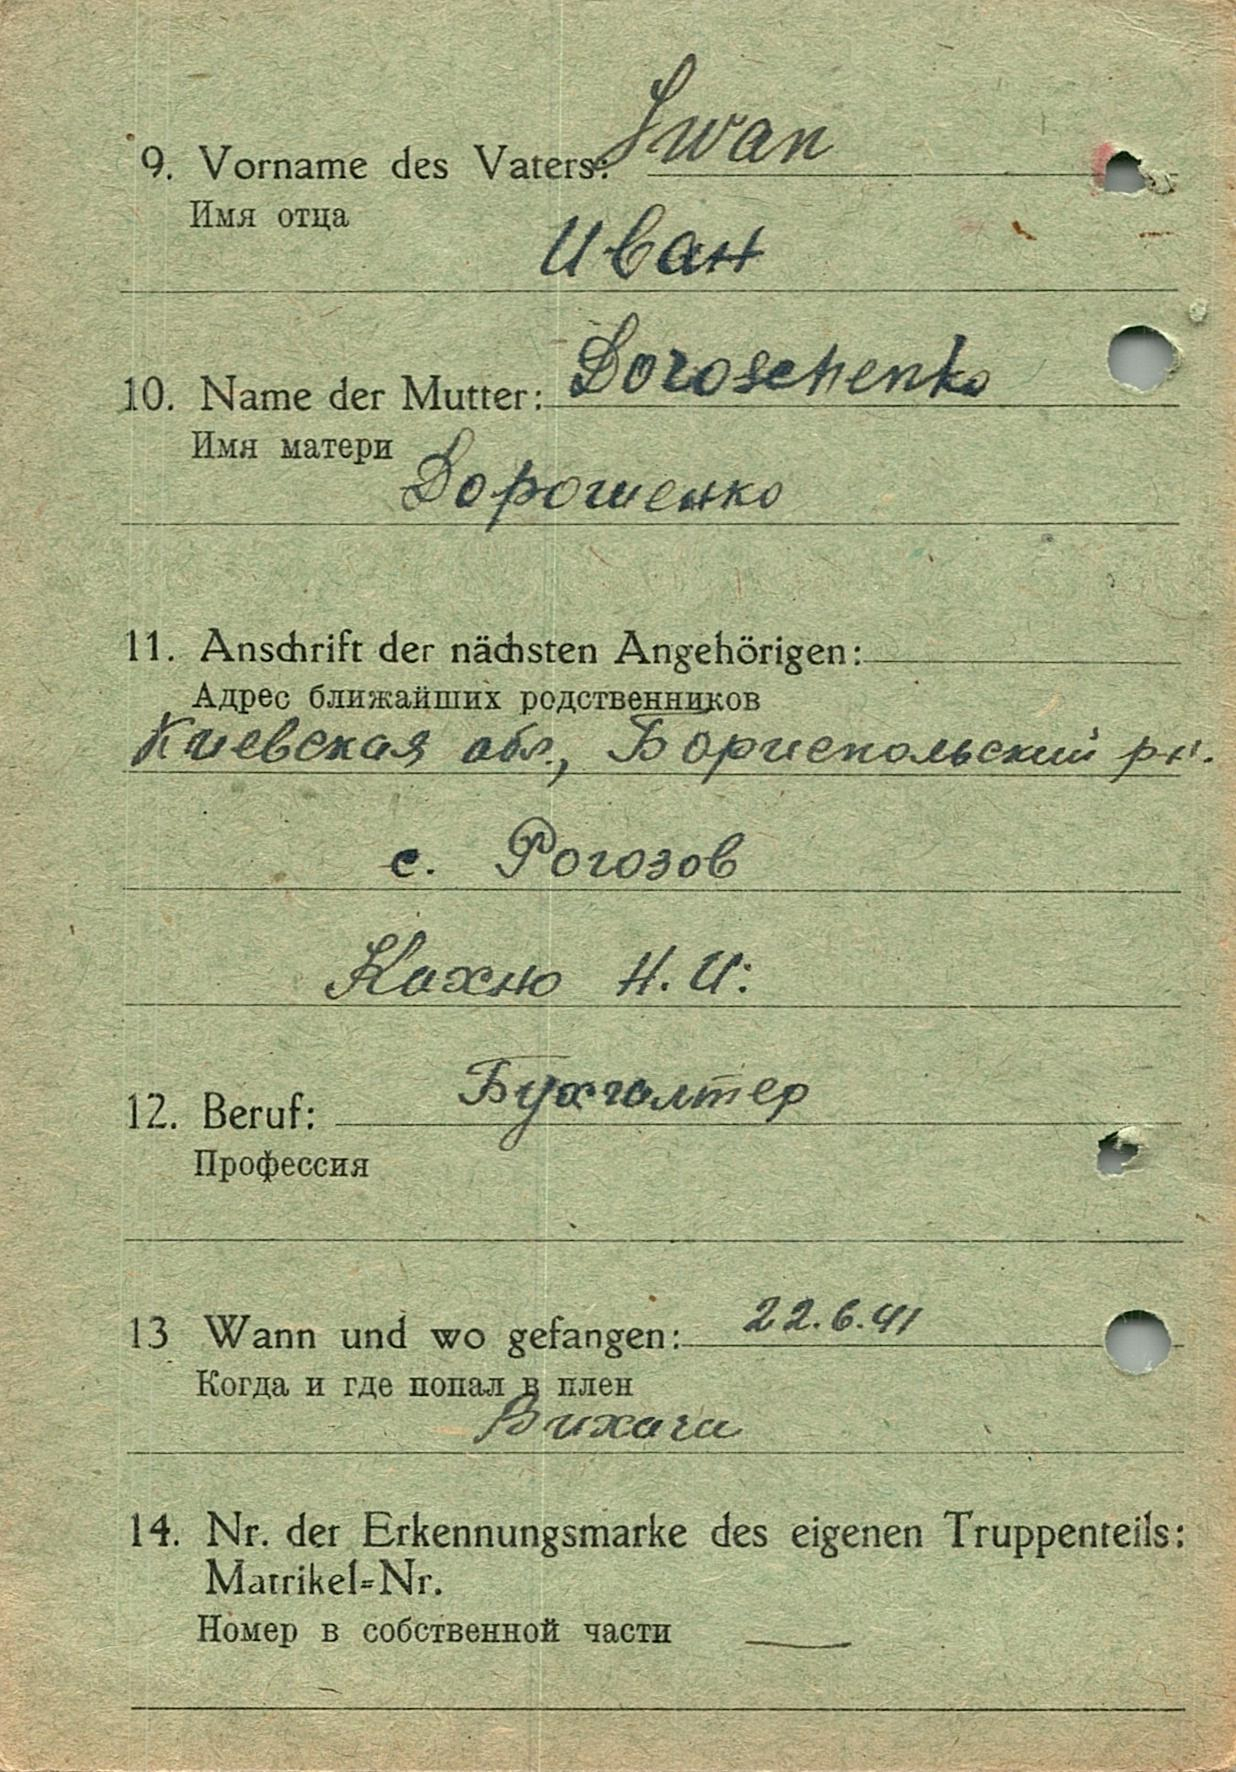 9. Vorname des Vaters: Iwan
Имя отца
Иван
10. Name der Mutter: Doroschenko
Имя матери
Дорошенко
11. Anschrift der nächsten Angehörigen:
Адрес ближайших родственников
Киевская обл., Бориспольский рн.
с. Рогозов
Кахню Н. И.
12. Beruf: Бухгалтер
Профессия
13 Wann und wo gefangen: 22.6.41
Когда и где попал в плен
14. Nr. der Erkennungsmarke des eigenen Truppenteils:
Matrikel=Nr.
Номер в собственной части —